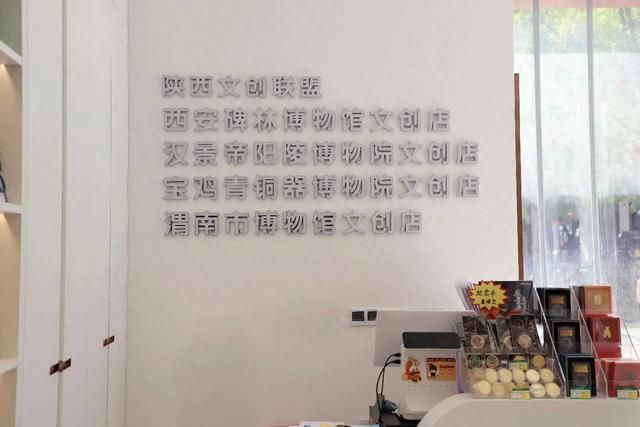 陕西文创联盟
西安碑林博物馆文创店
汉景帝阳陵博物院文创店
宝鸡青铜器博物院文创店
渭南市博物馆文创店
纪念币